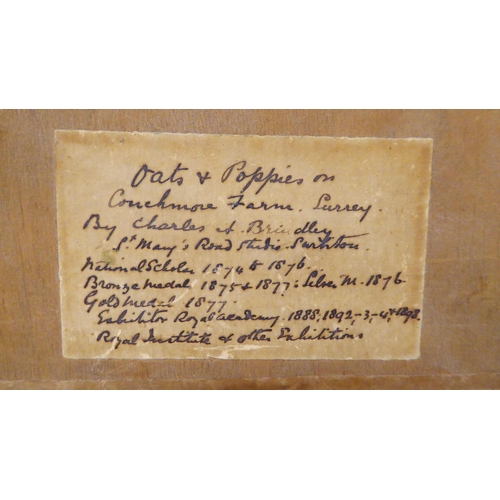 Oats & Poppies on
Couchmore Farm. Surrey.
By Charles A. Brindley
St Mary's Road Studio. Surbiton.
National Scholar 1874 to 1876.
Bronze Medal 1875 & 1877: Silver M. 1876
Gold Medal 1877.
Exhibitor Royal Academy. 1888, 1892,-3,-4, & 1898.
Royal Institute & other Exhibitions